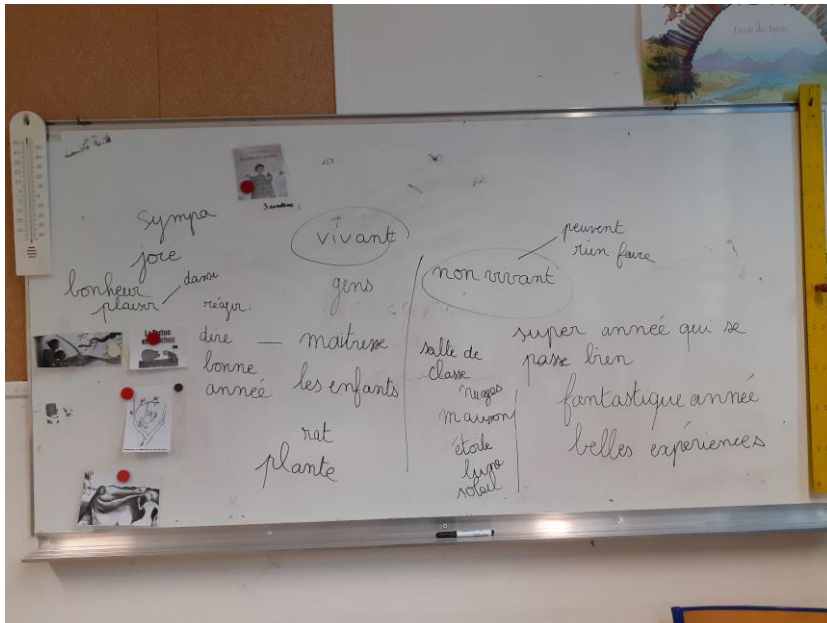 l'école des loisirs
sympa
joie
bonheur
plaisir
danse
réagir:
dire — maîtresse
bonne
année
vivant
gens
les enfants
rat
plante
non vivant
peuvent
rien faire
salle de
classe
nuages
maison
étoile
lune
soleil
super année qui se
passe bien
fantastique année
belles expériences